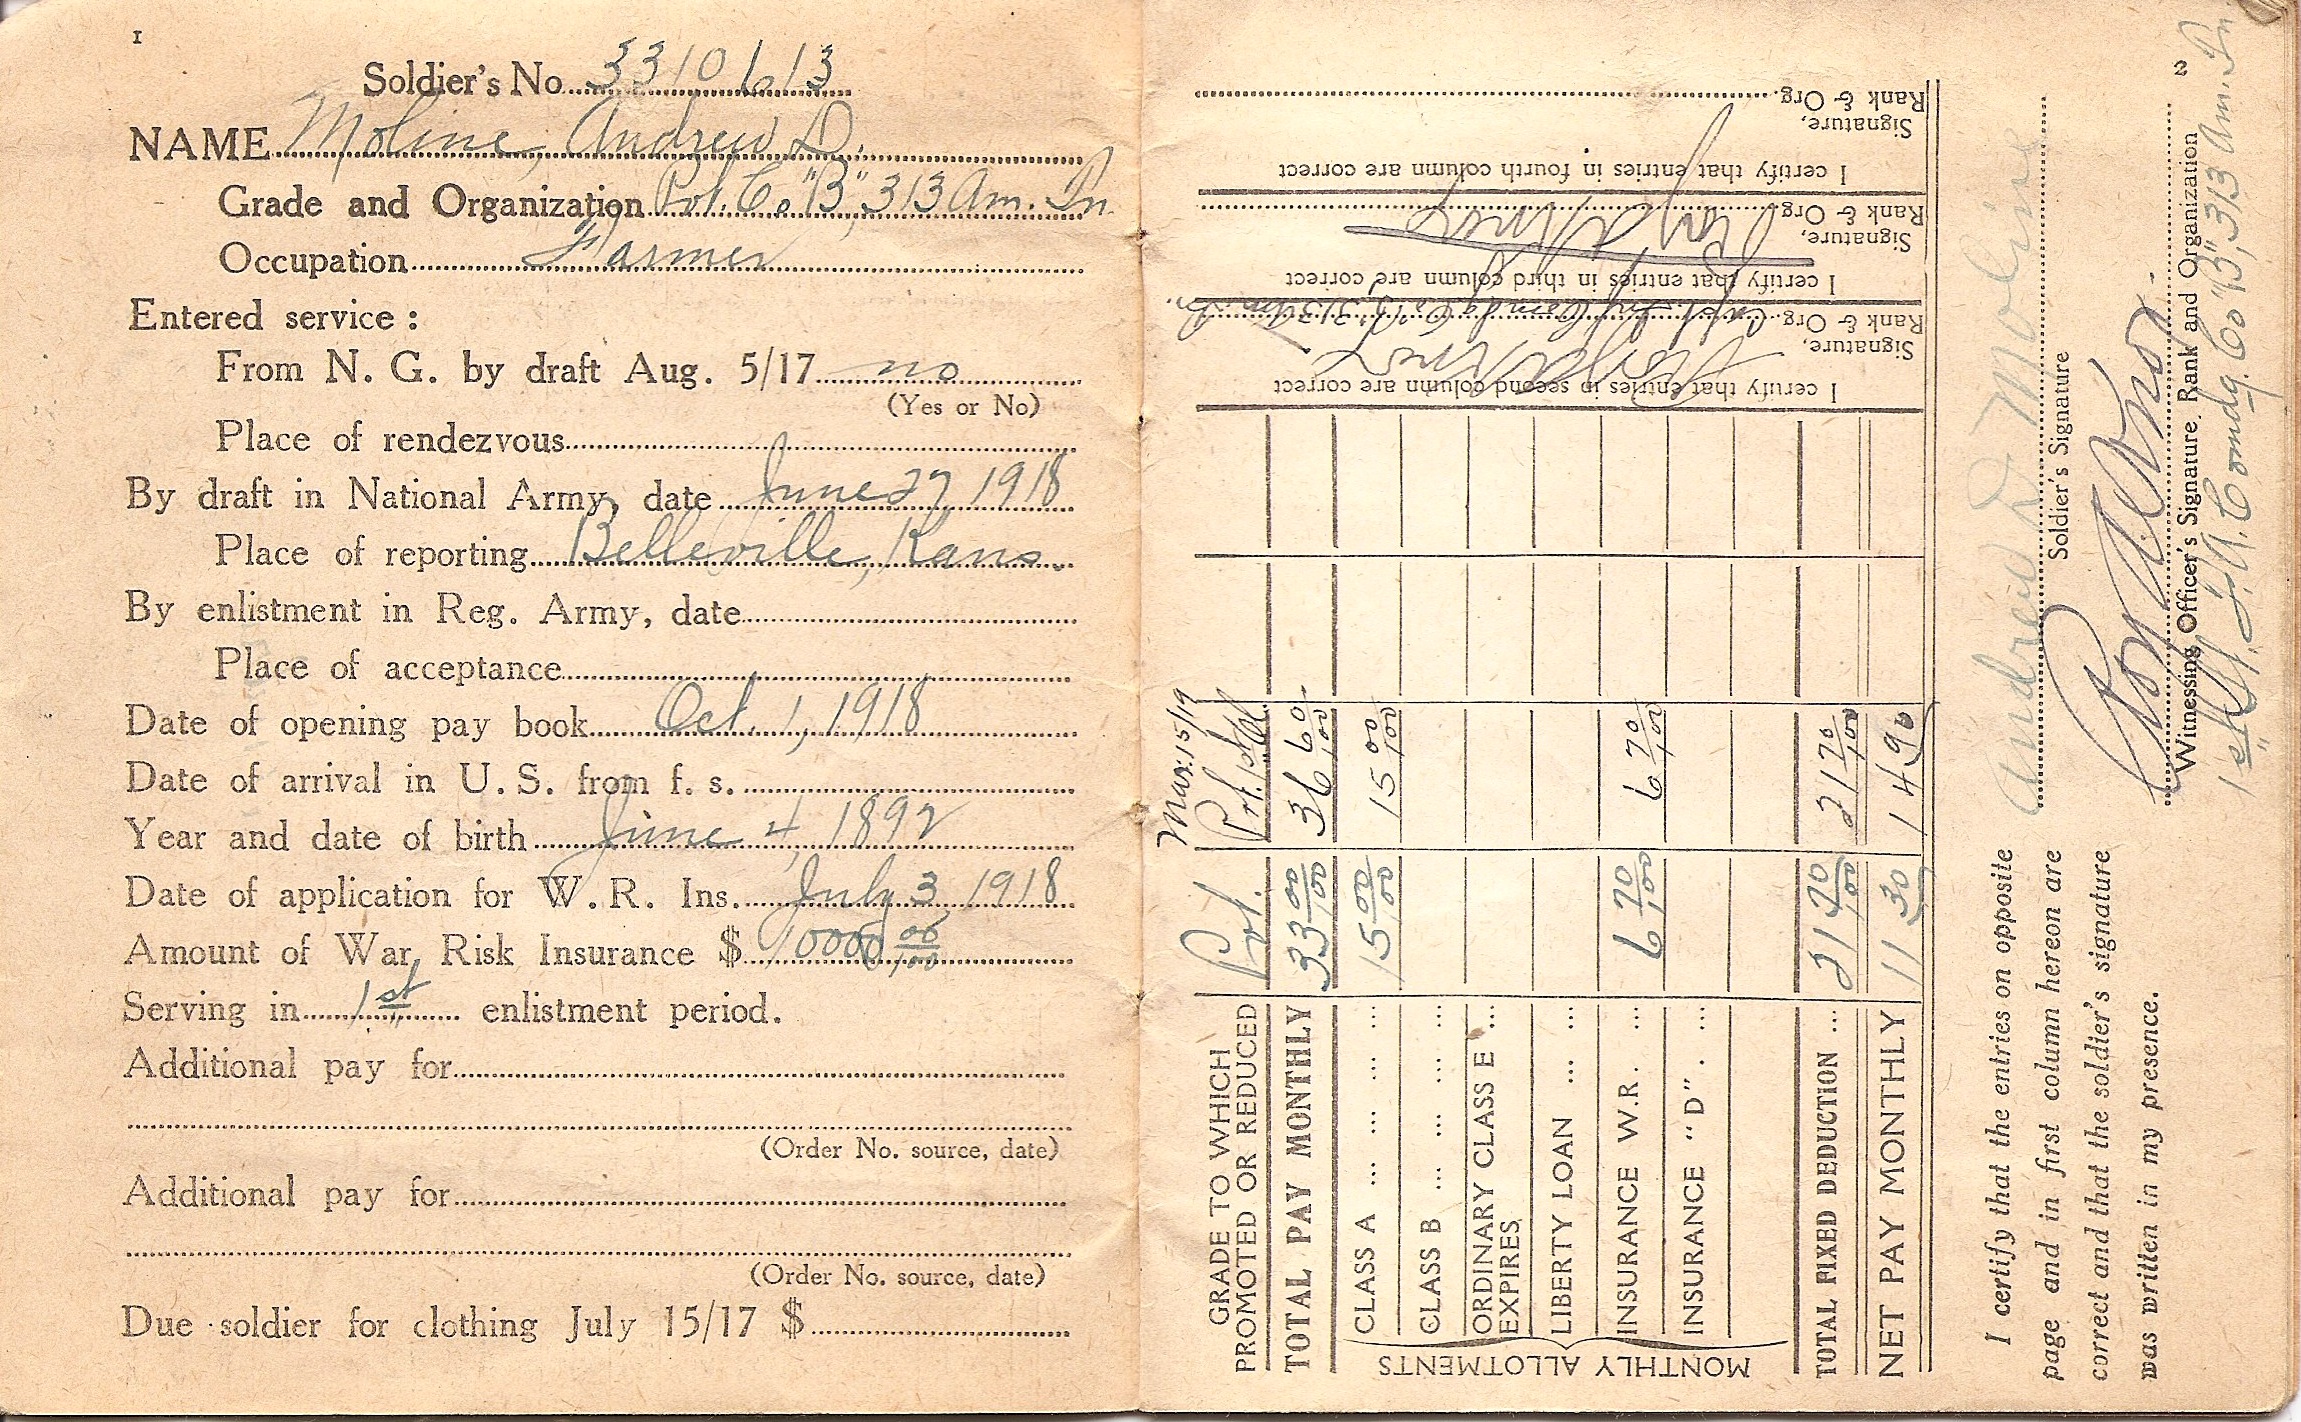 1
Soldier's No. 3310613
NAME Moline, Andrew D.
Grade and Organization Pvt. Co "B", 313 Am. Tn.
Occupation Farmer
Entered service :
From N. G. by draft Aug. 5/17 no
(Yes or No)
Place of rendezvous
By draft in National Army, date June 27 1918
Place of reporting Belleville, Kans.
By enlistment in Reg. Army, date
Place of acceptance
Date of opening pay book Oct. 1, 1918
Date of arrival in U. S. from f. s.
Year and date of birth June 4, 1892
Date of application for W. R. Ins. July 3, 1918
Amount of War Risk Insurance $ 10000 00/100
Serving in 1st enlistment period.
Additional pay for
(Order No. source, date)
Additional pay for
(Order No. source, date)
Due soldier for clothing July 15/17 $
2
Mar. 15/19
GRADE TO WHICH PROMOTED OR REDUCED Pvt. Pvt. 1st Cl.
TOTAL PAY MONTHLY 33 00/100 36 60/100
MONTHLY ALLOTMENTS
CLASS A ... ... ... ... 15 00/100 15 00/100
CLASS B ... ... ... ...
ORDINARY CLASS E ...
EXPIRES
LIBERTY LOAN ... ...
INSURANCE W.R. ... 6 70/100 6 70/100
INSURANCE "D" . ...
TOTAL FIXED DEDUCTION ... 21 70/100 21 70/100
NET PAY MONTHLY 11 30 14 90
I certify that the entries on opposite
page and in first column hereon are
correct and that the soldier's signature
was written in my presence.
Andrew D. Moline
Soldier's Signature
Witnessing Officer's Signature. Rank and Organization
1st Lt. F.A. Comdg. Co "B", 313 Am. Tn.
I certify that entries in second column are correct
Signature,
Rank & Org. Capt. Comdg Co "B" 313 Am. Tn.
I certify that entries in third column are correct
Signature,
Rank & Org.
I certify that entries in fourth column are correct
Signature,
Rank & Org.